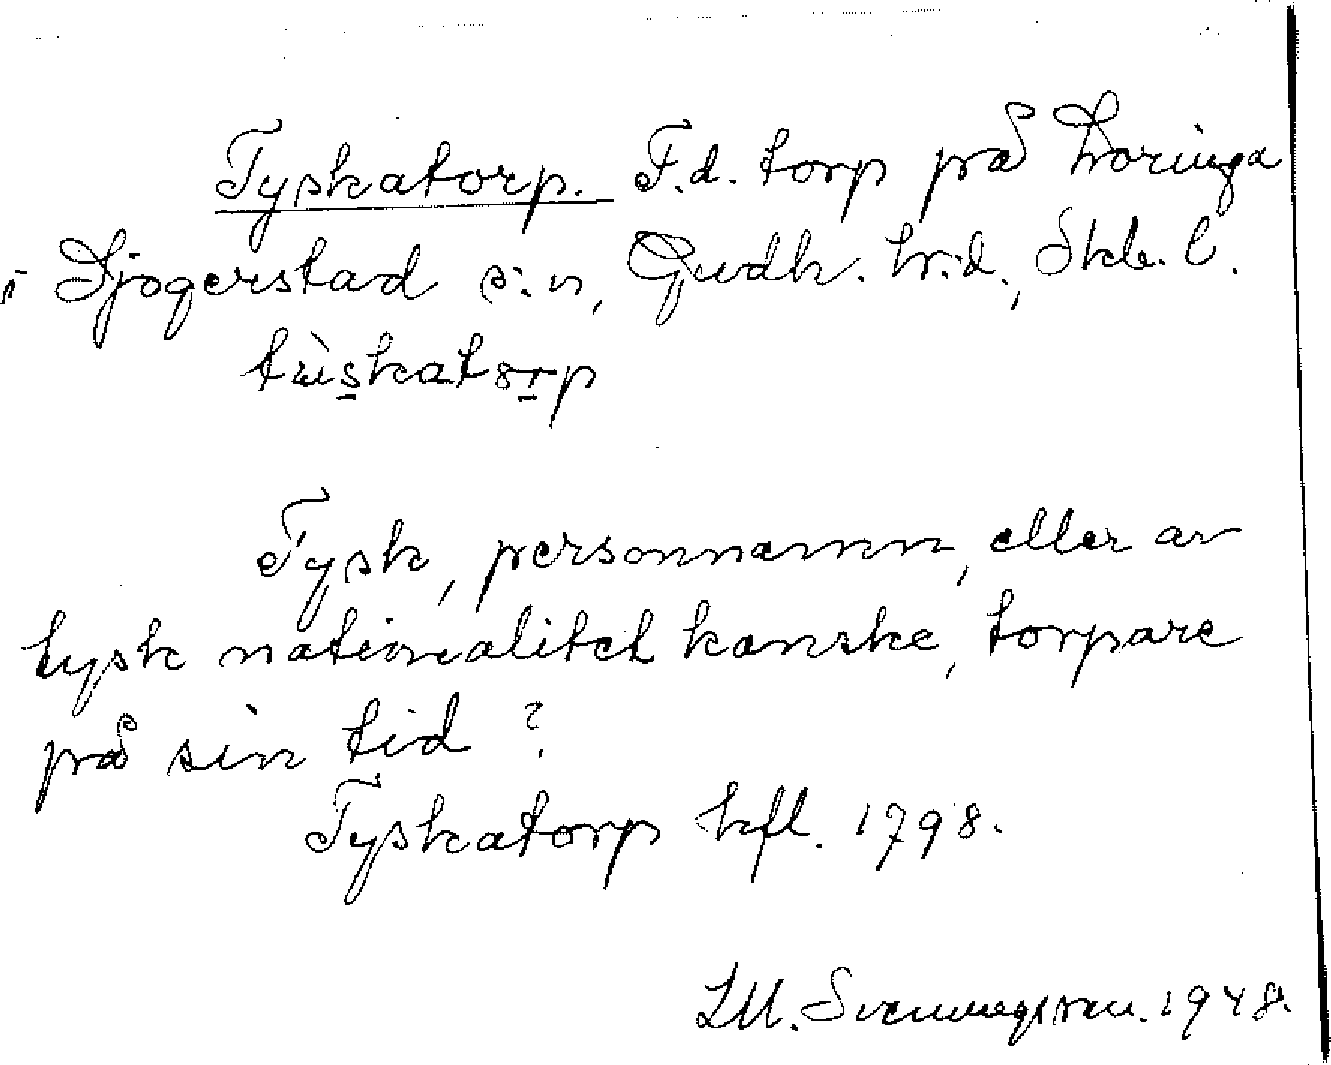 Tyskatorp. F.d. torp på Loringa
i Sjogerstad s:n, Gudh. hr.d., Skb. l.
tùskatorp
Tysk, personnamn, eller av
tysk nationalitet kanske, torpare
på sin tid?
Tyskatorp hfl. 1798.
LM. Svenungsson. 1948.